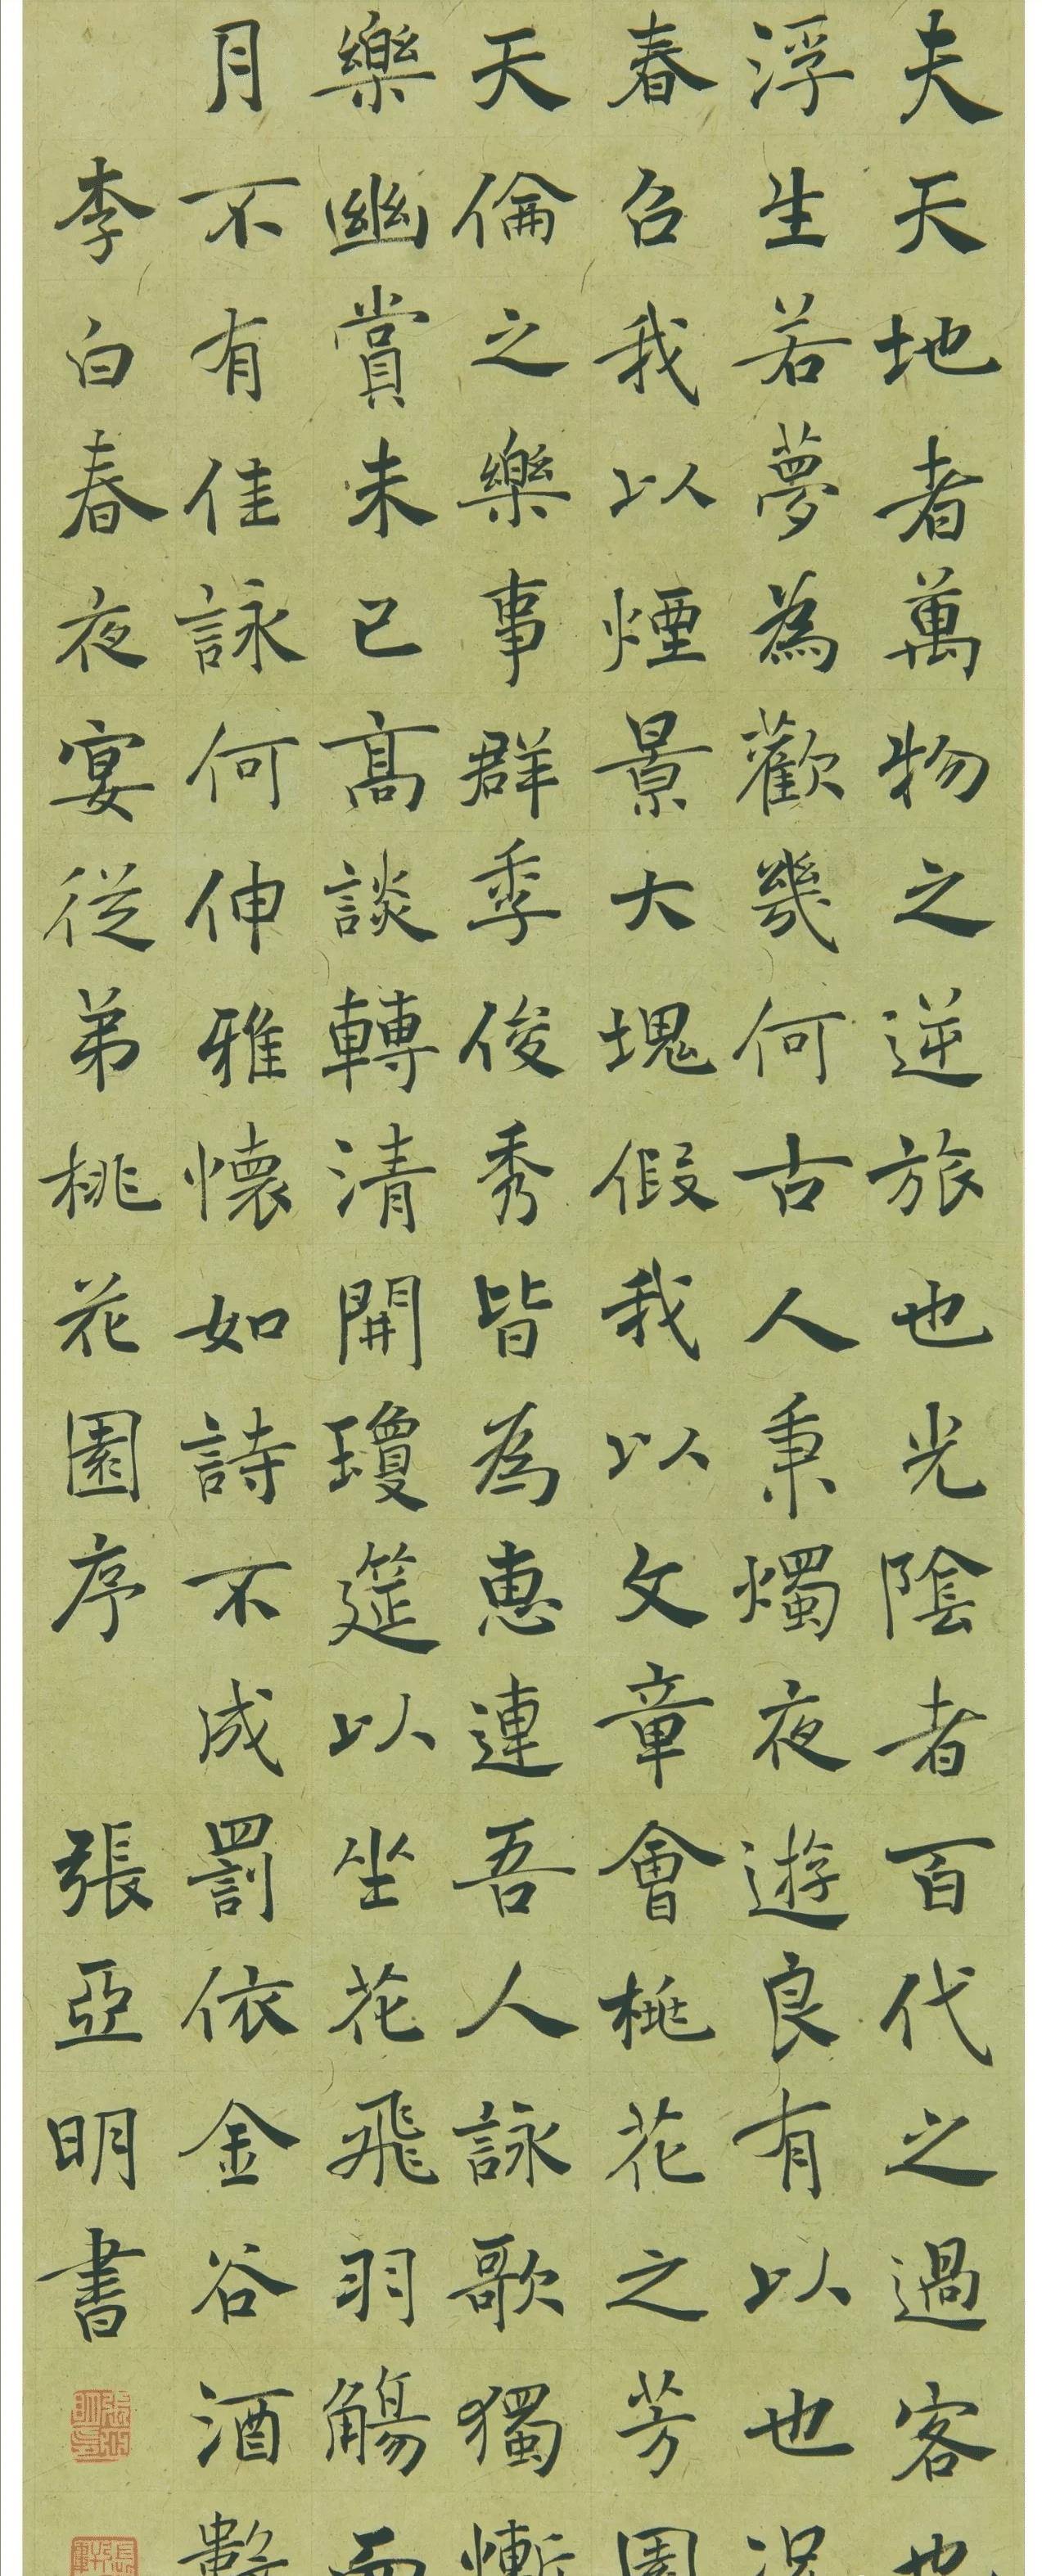 夫天地者萬物之逆旅也光陰者百代之過客也
浮生若夢為歡幾何古人秉燭夜遊良有以也況
春召我以煙景大塊假我以文章會桃花之芳園
天倫之樂事群季俊秀皆為惠連吾人詠歌獨慚
樂幽賞未已高談轉清開瓊筵以坐花飛羽觴而
月不有佳詠何伸雅懷如詩不成罰依金谷酒數
李白春夜宴從弟桃花園序 張亞明書